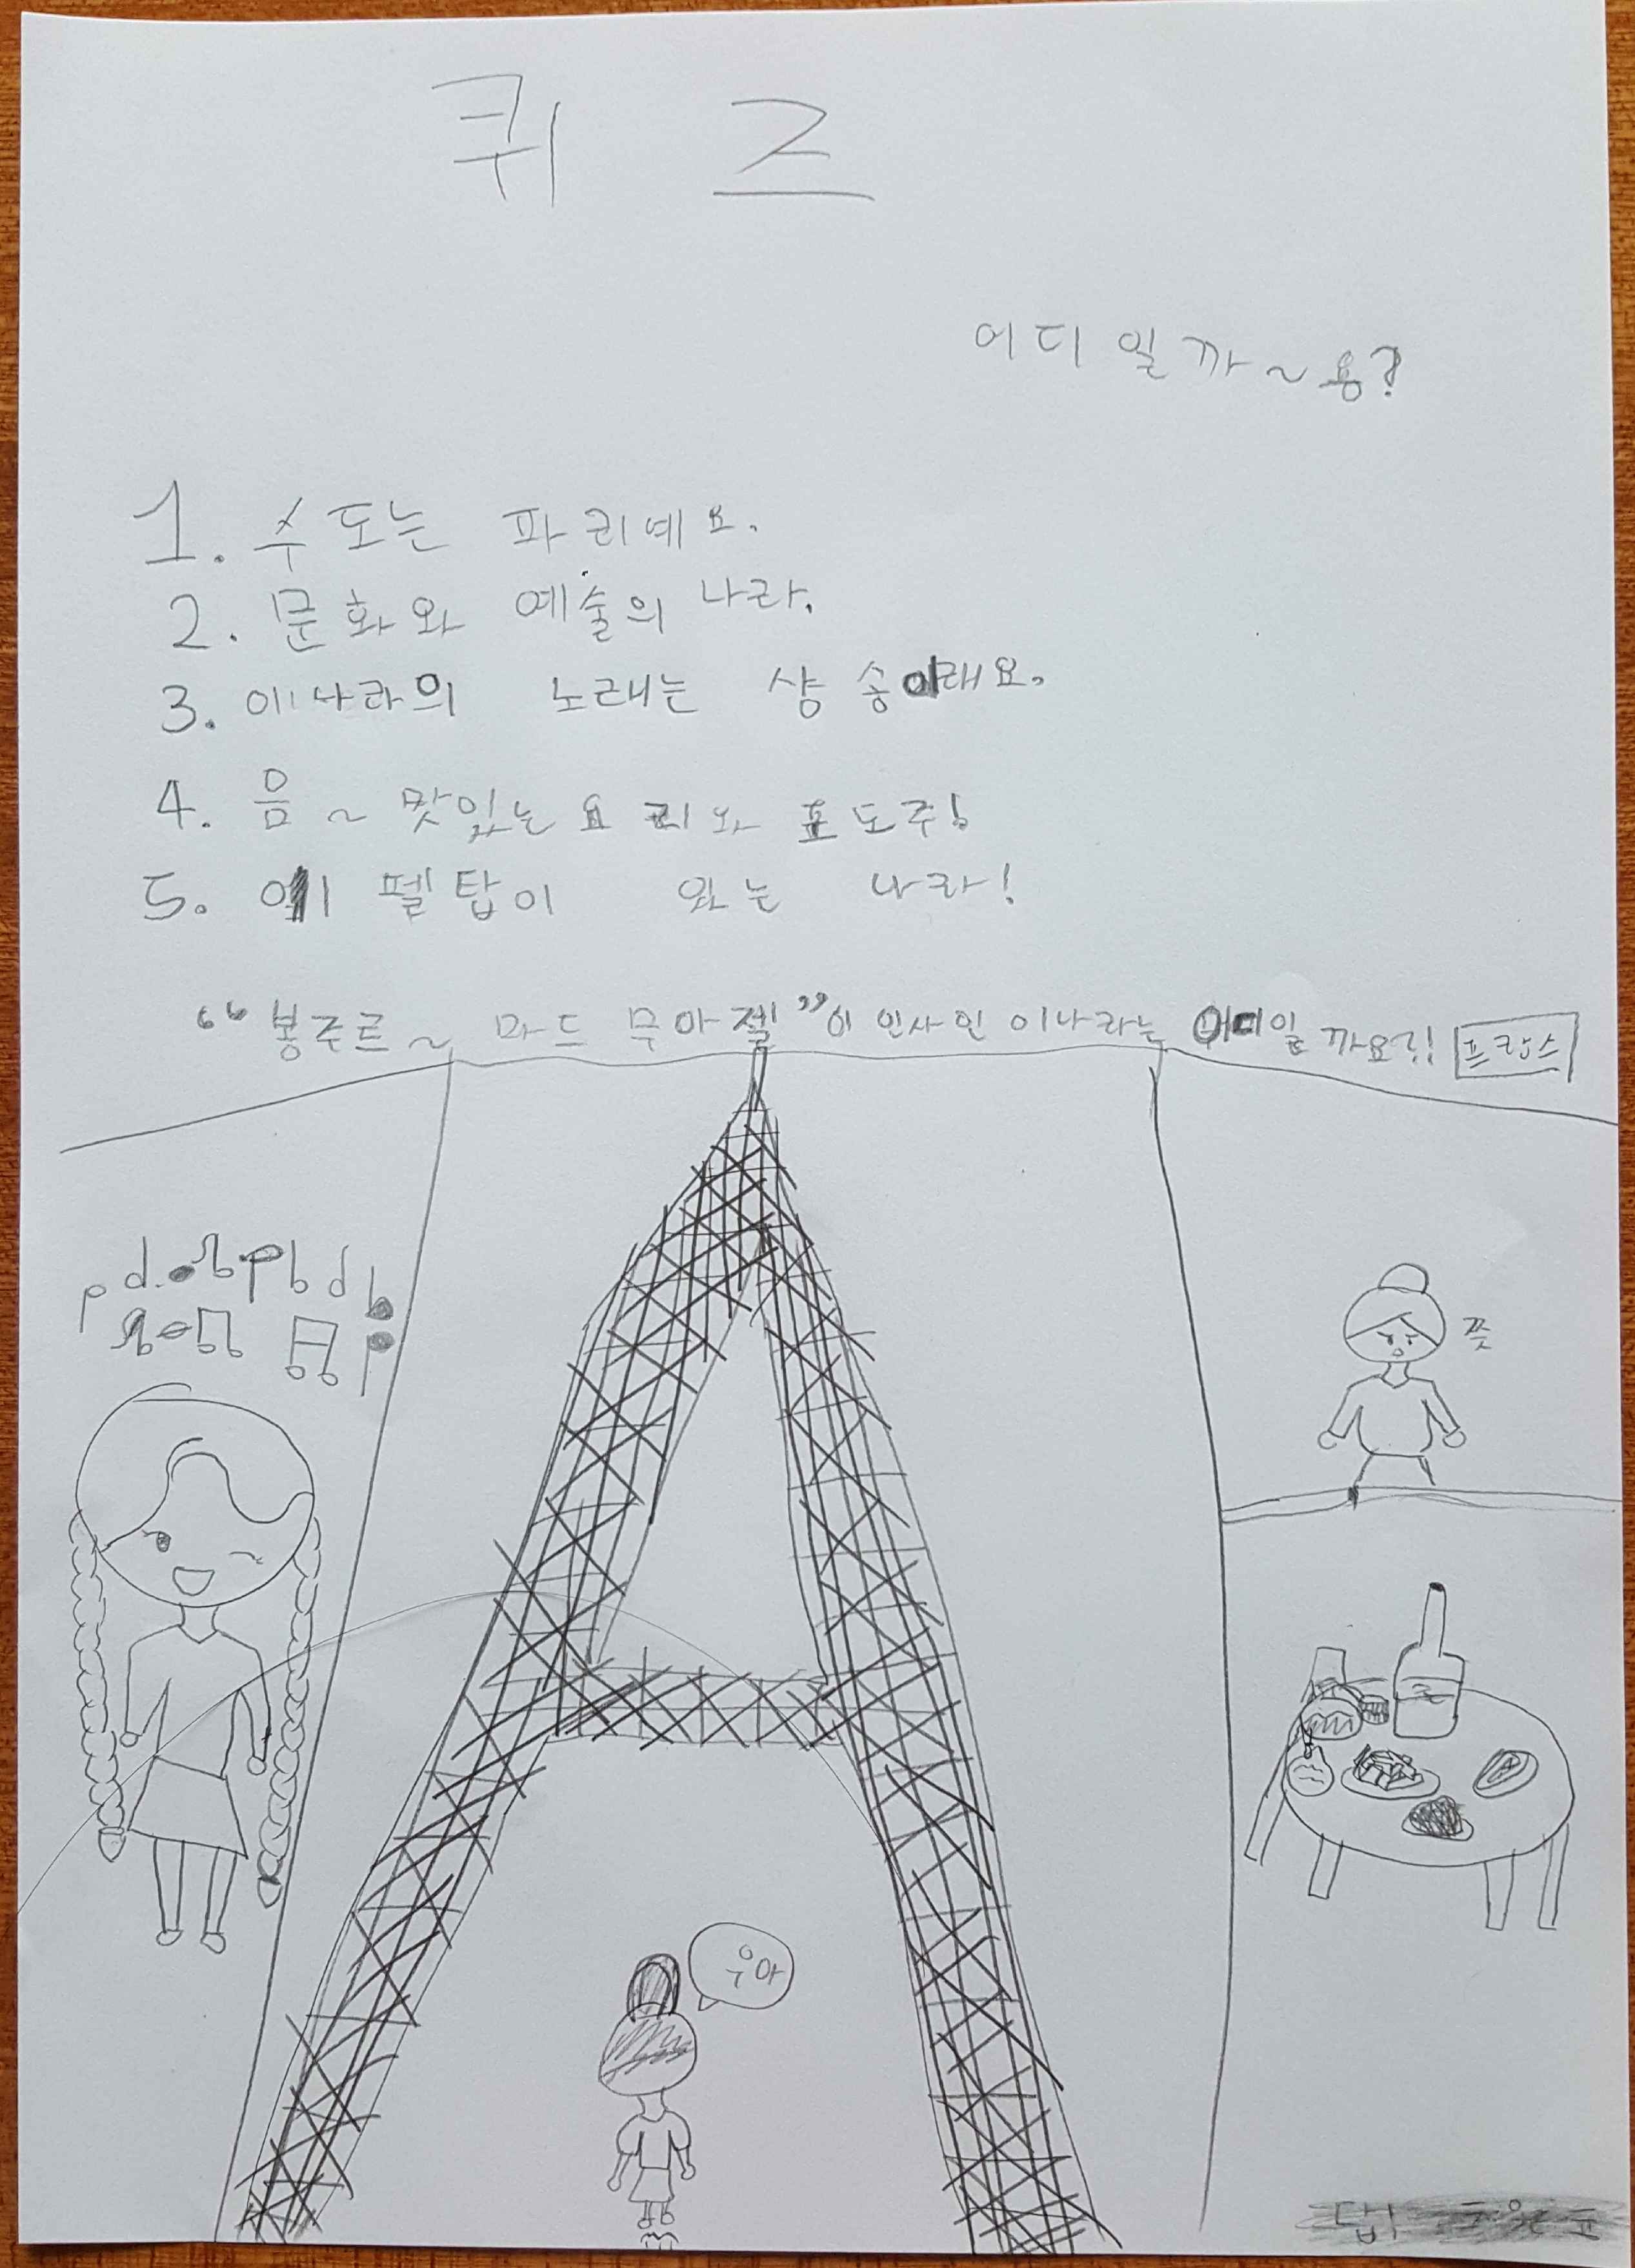 퀴즈
어디일까~용?
1. 수도는 파리예요.
2. 문화와 예술의 나라.
3. 이나라의 노래는 샹송이래요.
4. 음~ 맛있는 요리와 포도주!
5. 에펠탑이 있는 나라!
“봉주르~ 마드무아젤”이 인사인 이나라는 어디일까요?! 프랑스
쯧
우아
답: